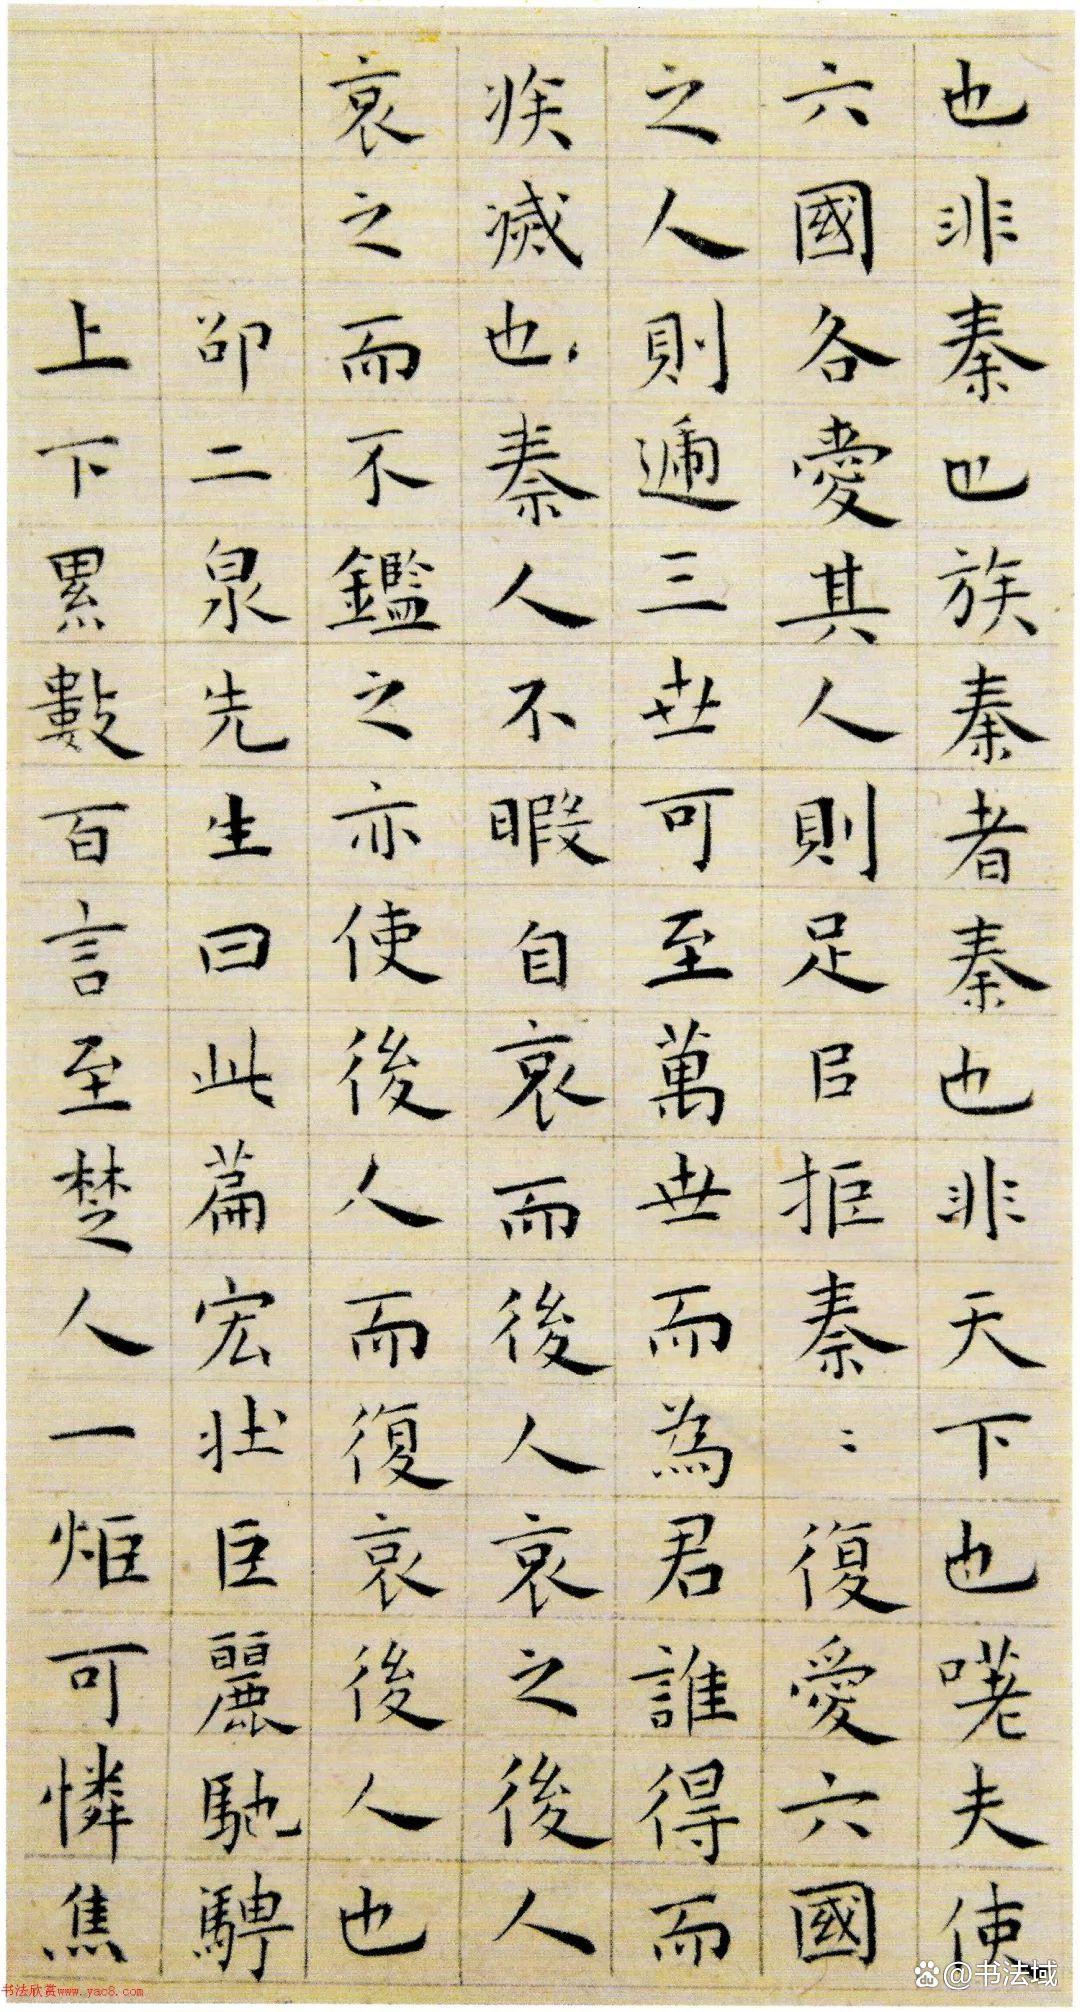 也非秦也族秦者秦也非天下也嗟夫使
六國各愛其人則足㠯拒秦〻復愛六國
之人則遞三世可至萬世而為君誰得而
族滅也秦人不暇自哀而後人哀之後人
哀之而不鑑之亦使後人而復哀後人也
邵二泉先生曰此篇宏壯巨麗馳騁
上下累數百言至楚人一炬可憐焦
书法欣赏www.yac8.com
@书法域